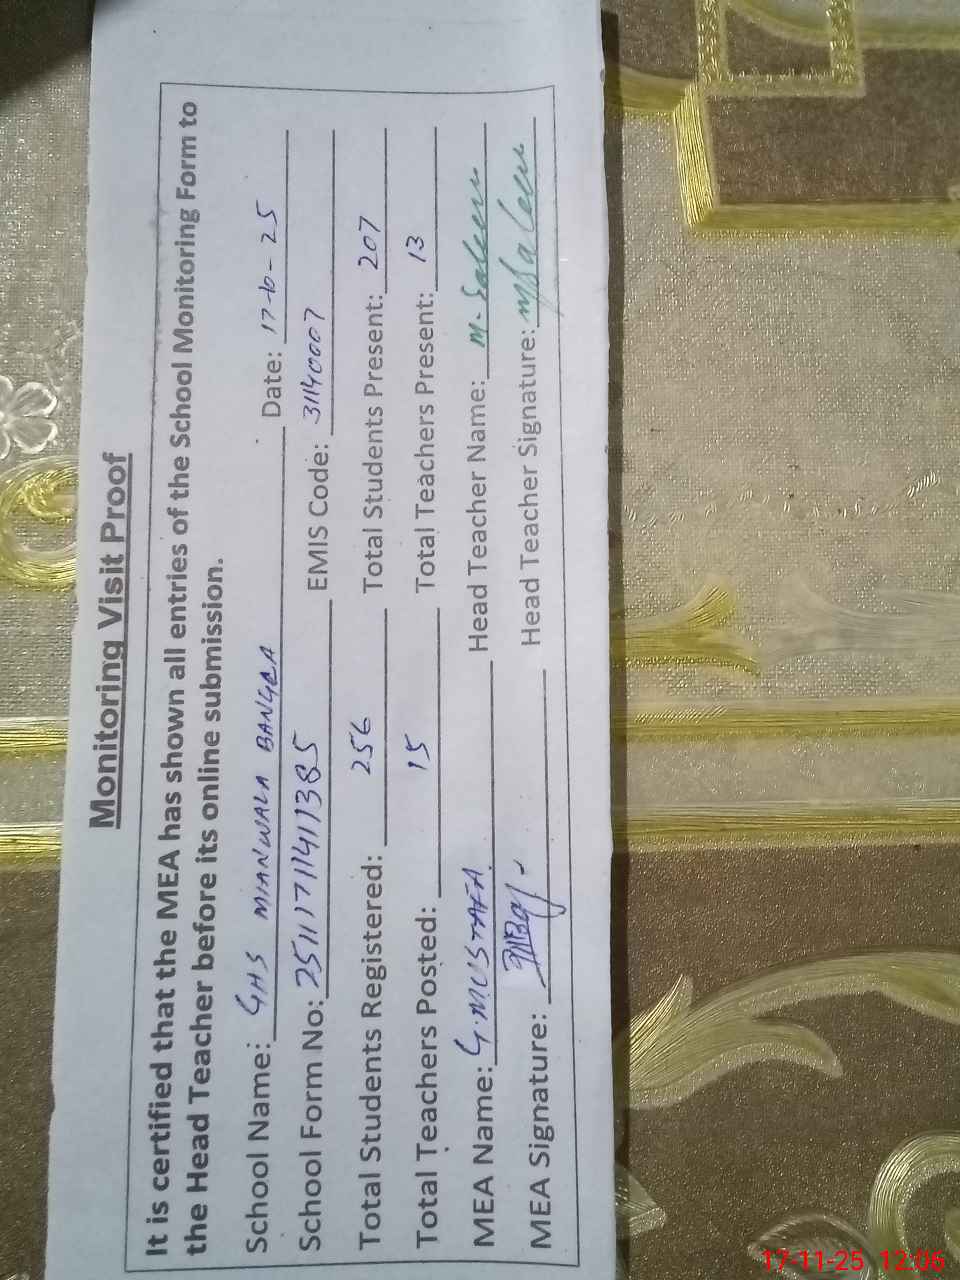 Monitoring Visit Proof
It is certified that the MEA has shown all entries of the School Monitoring Form to
the Head Teacher before its online submission.
School Name: GHS MIANWALA BANGLA Date: 17-10-25
School Form No: 25111711411385 EMIS Code: 31140007
Total Students Registered: 256 Total Students Present: 207
Total Teachers Posted: 15 Total Teachers Present: 13
MEA Name: G. MUSTAFA Head Teacher Name: M. Saleem
MEA Signature: Head Teacher Signature: M Saleem
17-11-25 12:06